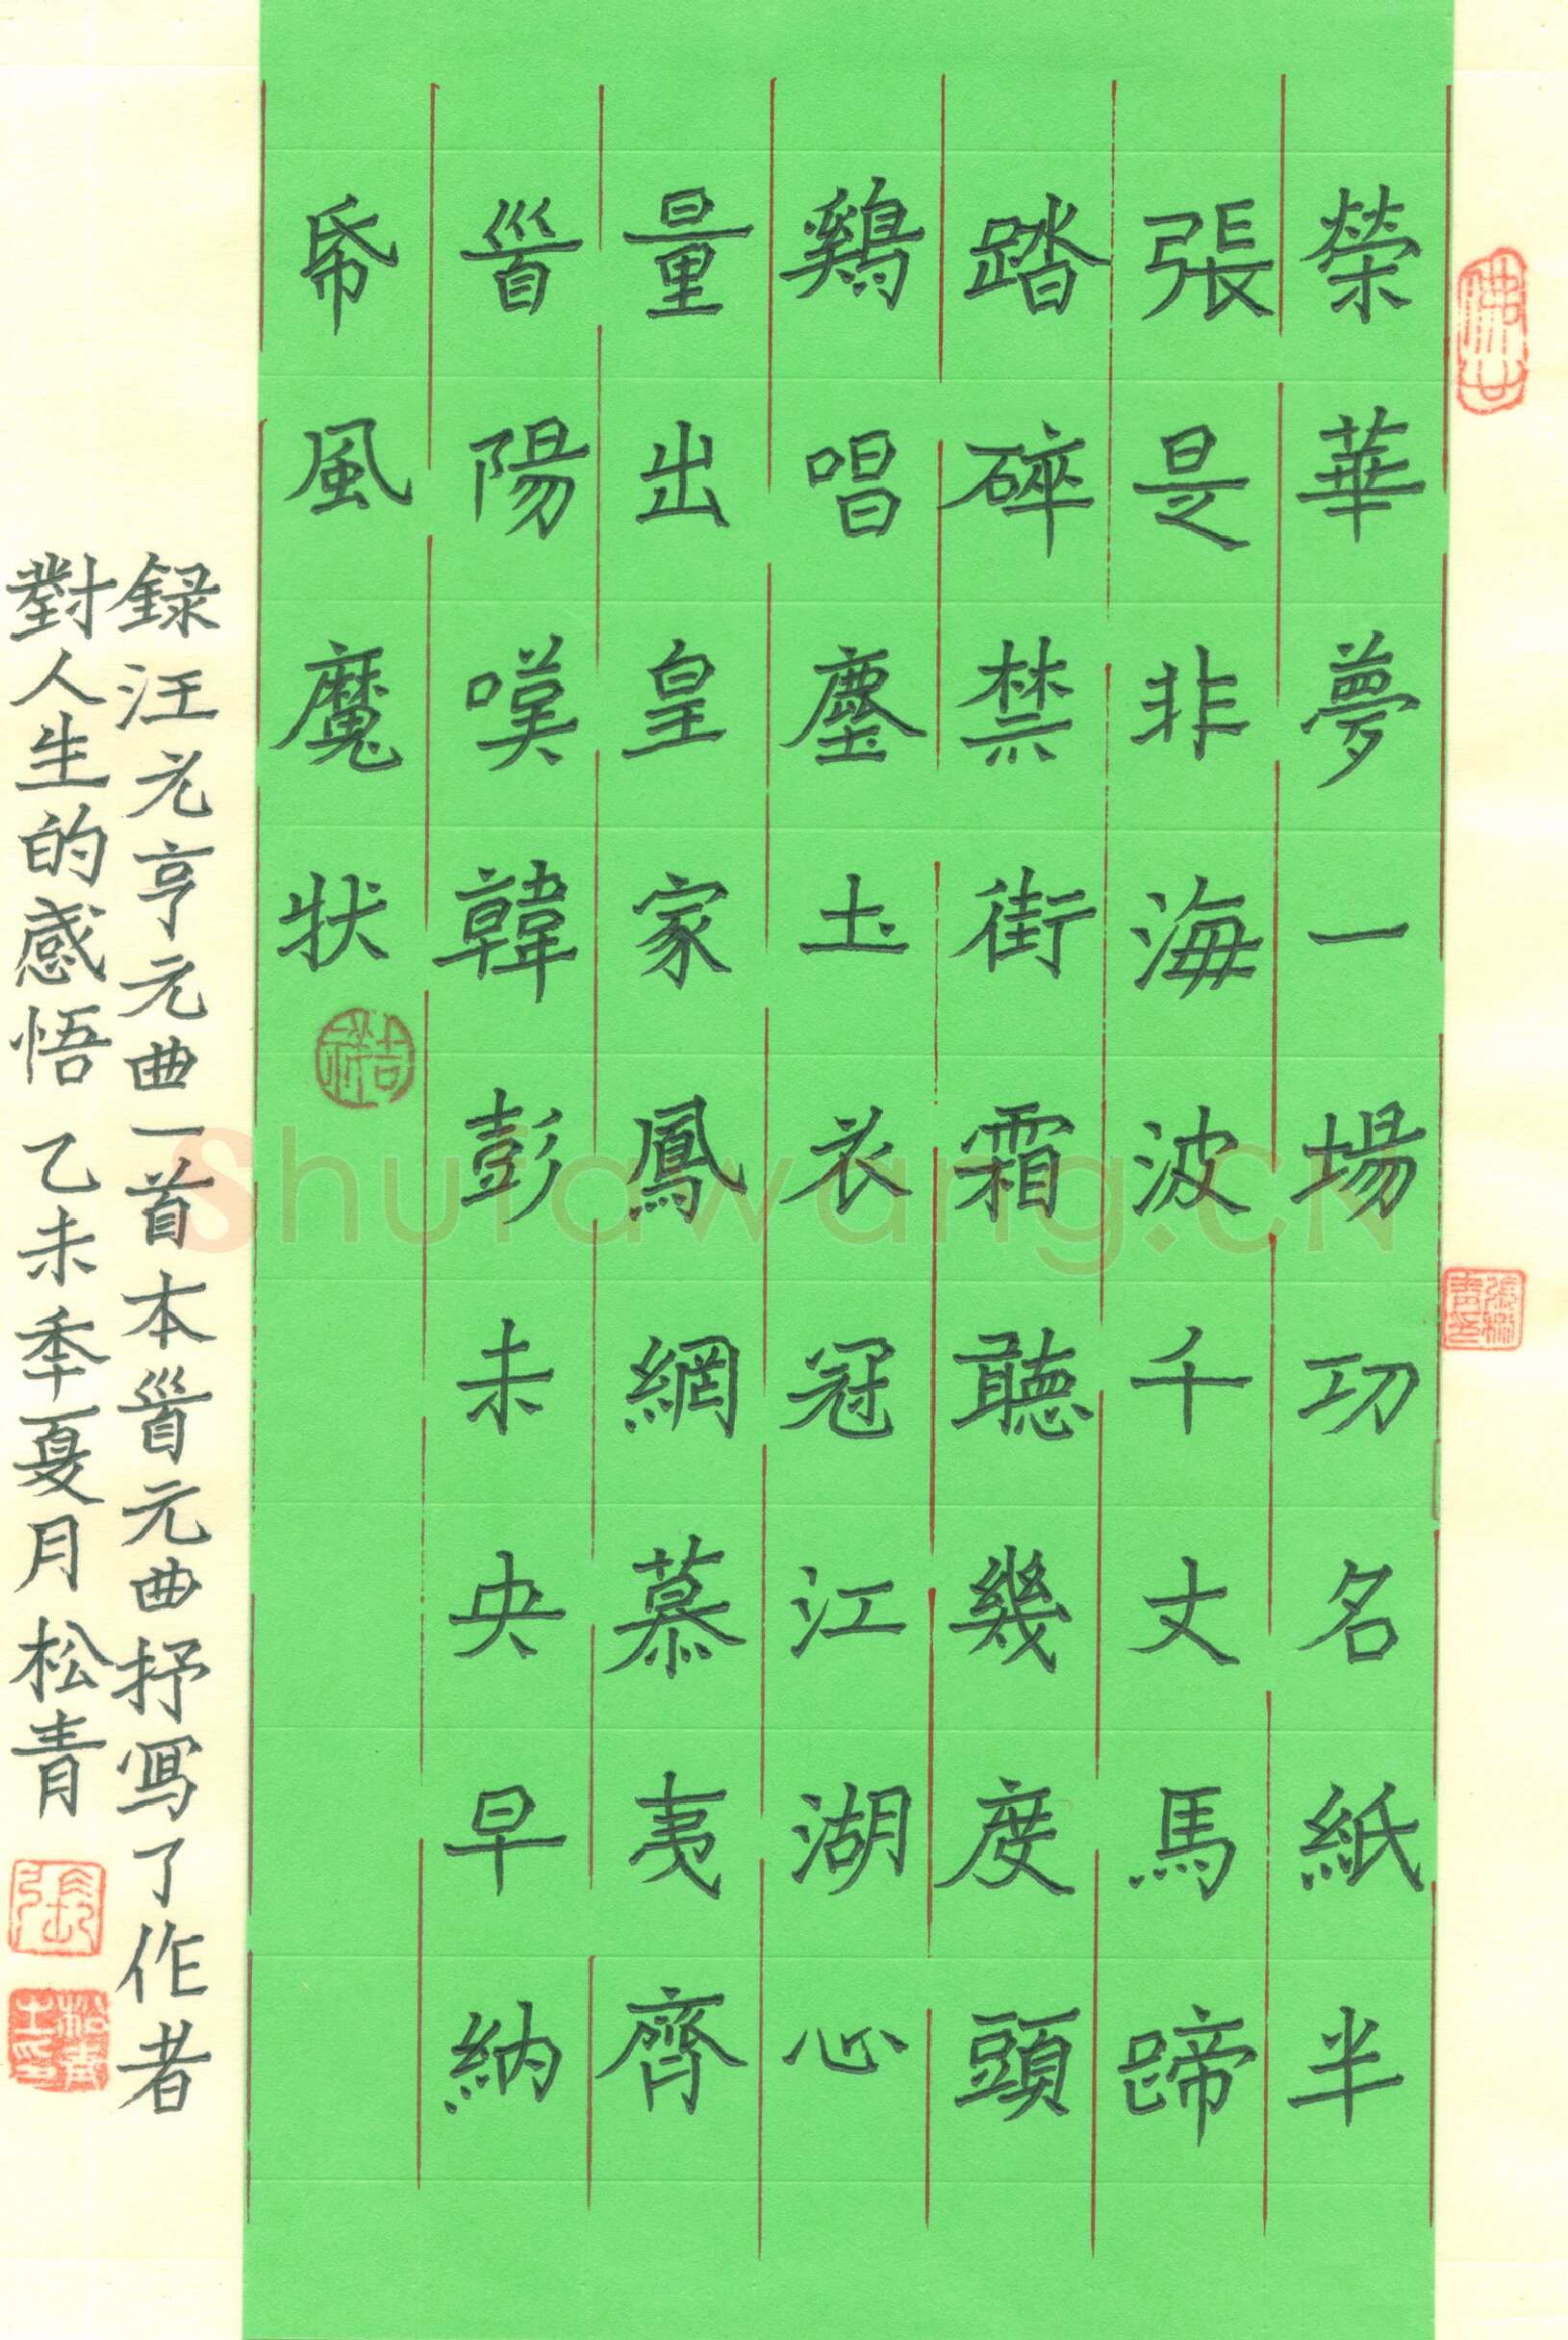 榮華夢一場功名紙半
張是非海波千丈馬蹄
踏碎禁街霜聽幾度頭
鷄唱塵土衣冠江湖心
量出皇家鳳網慕夷齊
𩠐陽嘆韓彭未央早納
帋風魔狀
吉祥
録汪元亨元曲一首本𩠐元曲抒寫了作者
對人生的感悟 乙未季夏月松青
張
Shufawang.CN